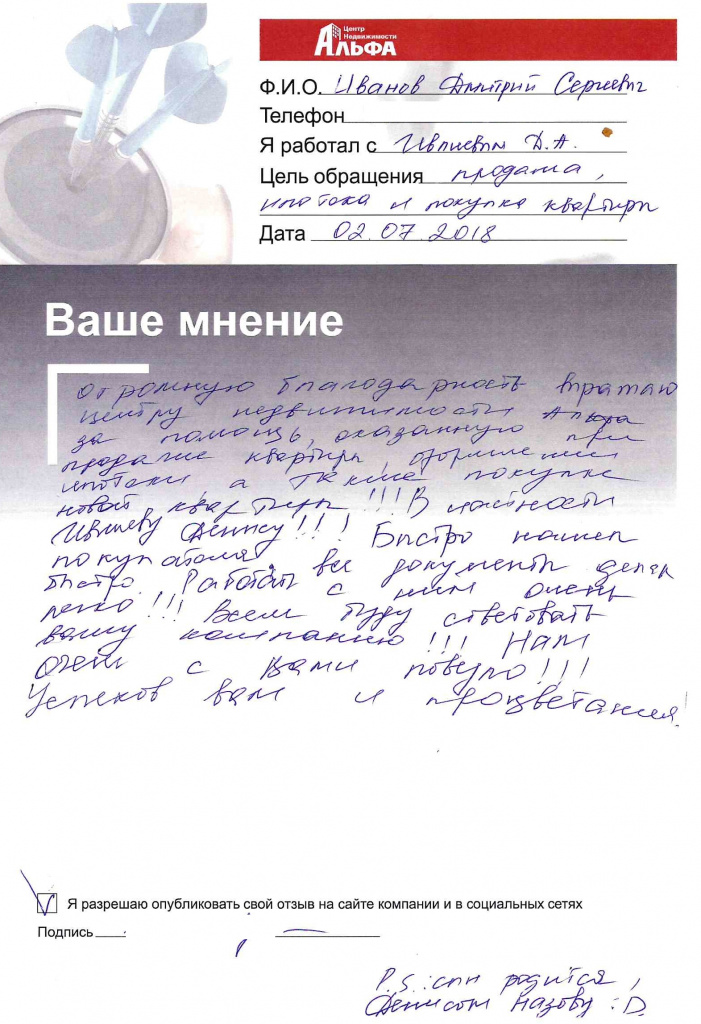 Центр
Недвижимости
АЛЬФА
Ф.И.О. Иванов Дмитрий Сергеевич
Телефон
Я работал с Ивлиевым Д.А.
Цель обращения продажа,
ипотека и покупка квартиры
Дата 02.07.2018
Ваше мнение
огромную благодарность выражаю
центру недвижимости Альфа
за помощь, оказанную при
продаже квартиры, оформлении
ипотеки а также покупке
новой квартиры!!! В частности
Ивлиеву Денису!!! Быстро нашел
покупателя.
быстро. Работать все документы делал
легко!!! с ним очень
Всем буду советовать
вашу компанию!!! Нам
очень с вами повезло!!!
Успехов вам и процветания.
Я разрешаю опубликовать свой отзыв на сайте компании и в социальных сетях
Подпись
P.S.: сын родится,
Денисом назову :D.